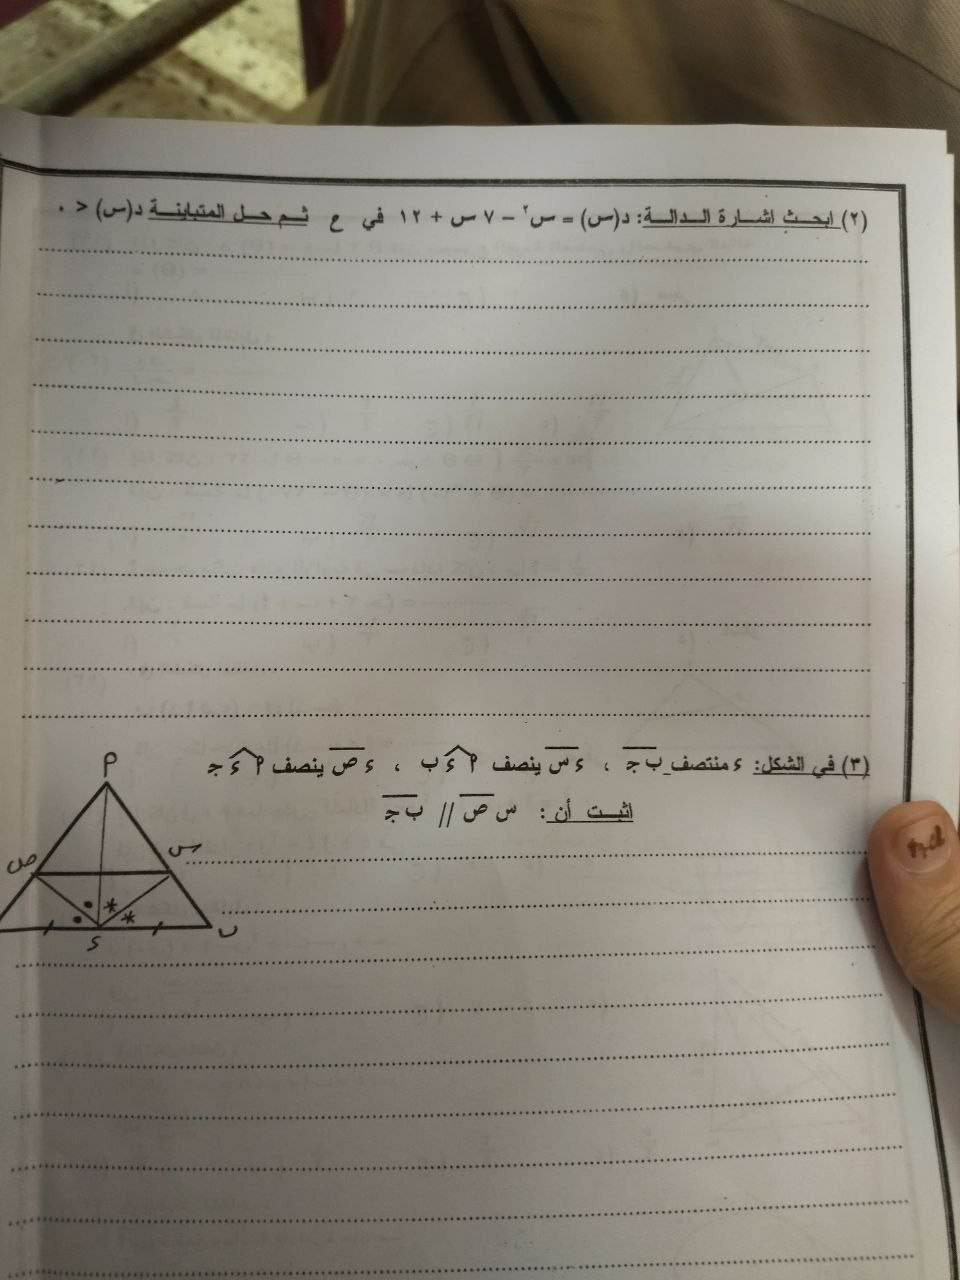 (٢) ابحث اشارة الدالة: د(س) = س٢ – ٧ س + ١٢ في ح ثم حل المتباينة د(س) > ٠
(٣) في الشكل: ء منتصف ب ج ، ء س ينصف أ ء ب ، ء ص ينصف أ ء ج
اثبت أن: س ص // ب ج
أ
ص
س
ب
ء